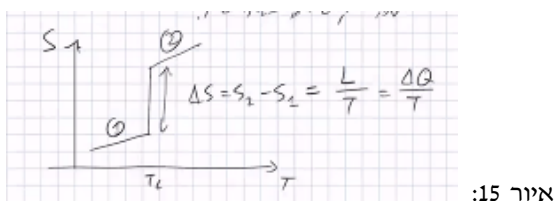 S
②
ΔS = S₂ - S₁ = L/T = ΔQ/T
①
T_c
T
איור 15: